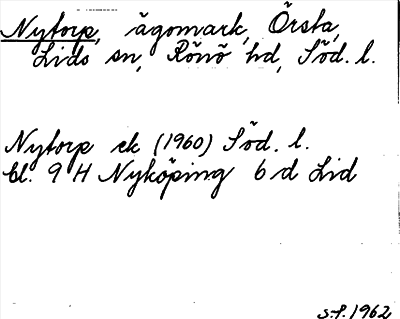 Nytorp, ägomark, Örsta,
Lids sn, Rönö hd, Söd. l.
Nytorp ek (1960) Söd. l.
bl. 9 H Nyköping 6 d Lid
s.f. 1962